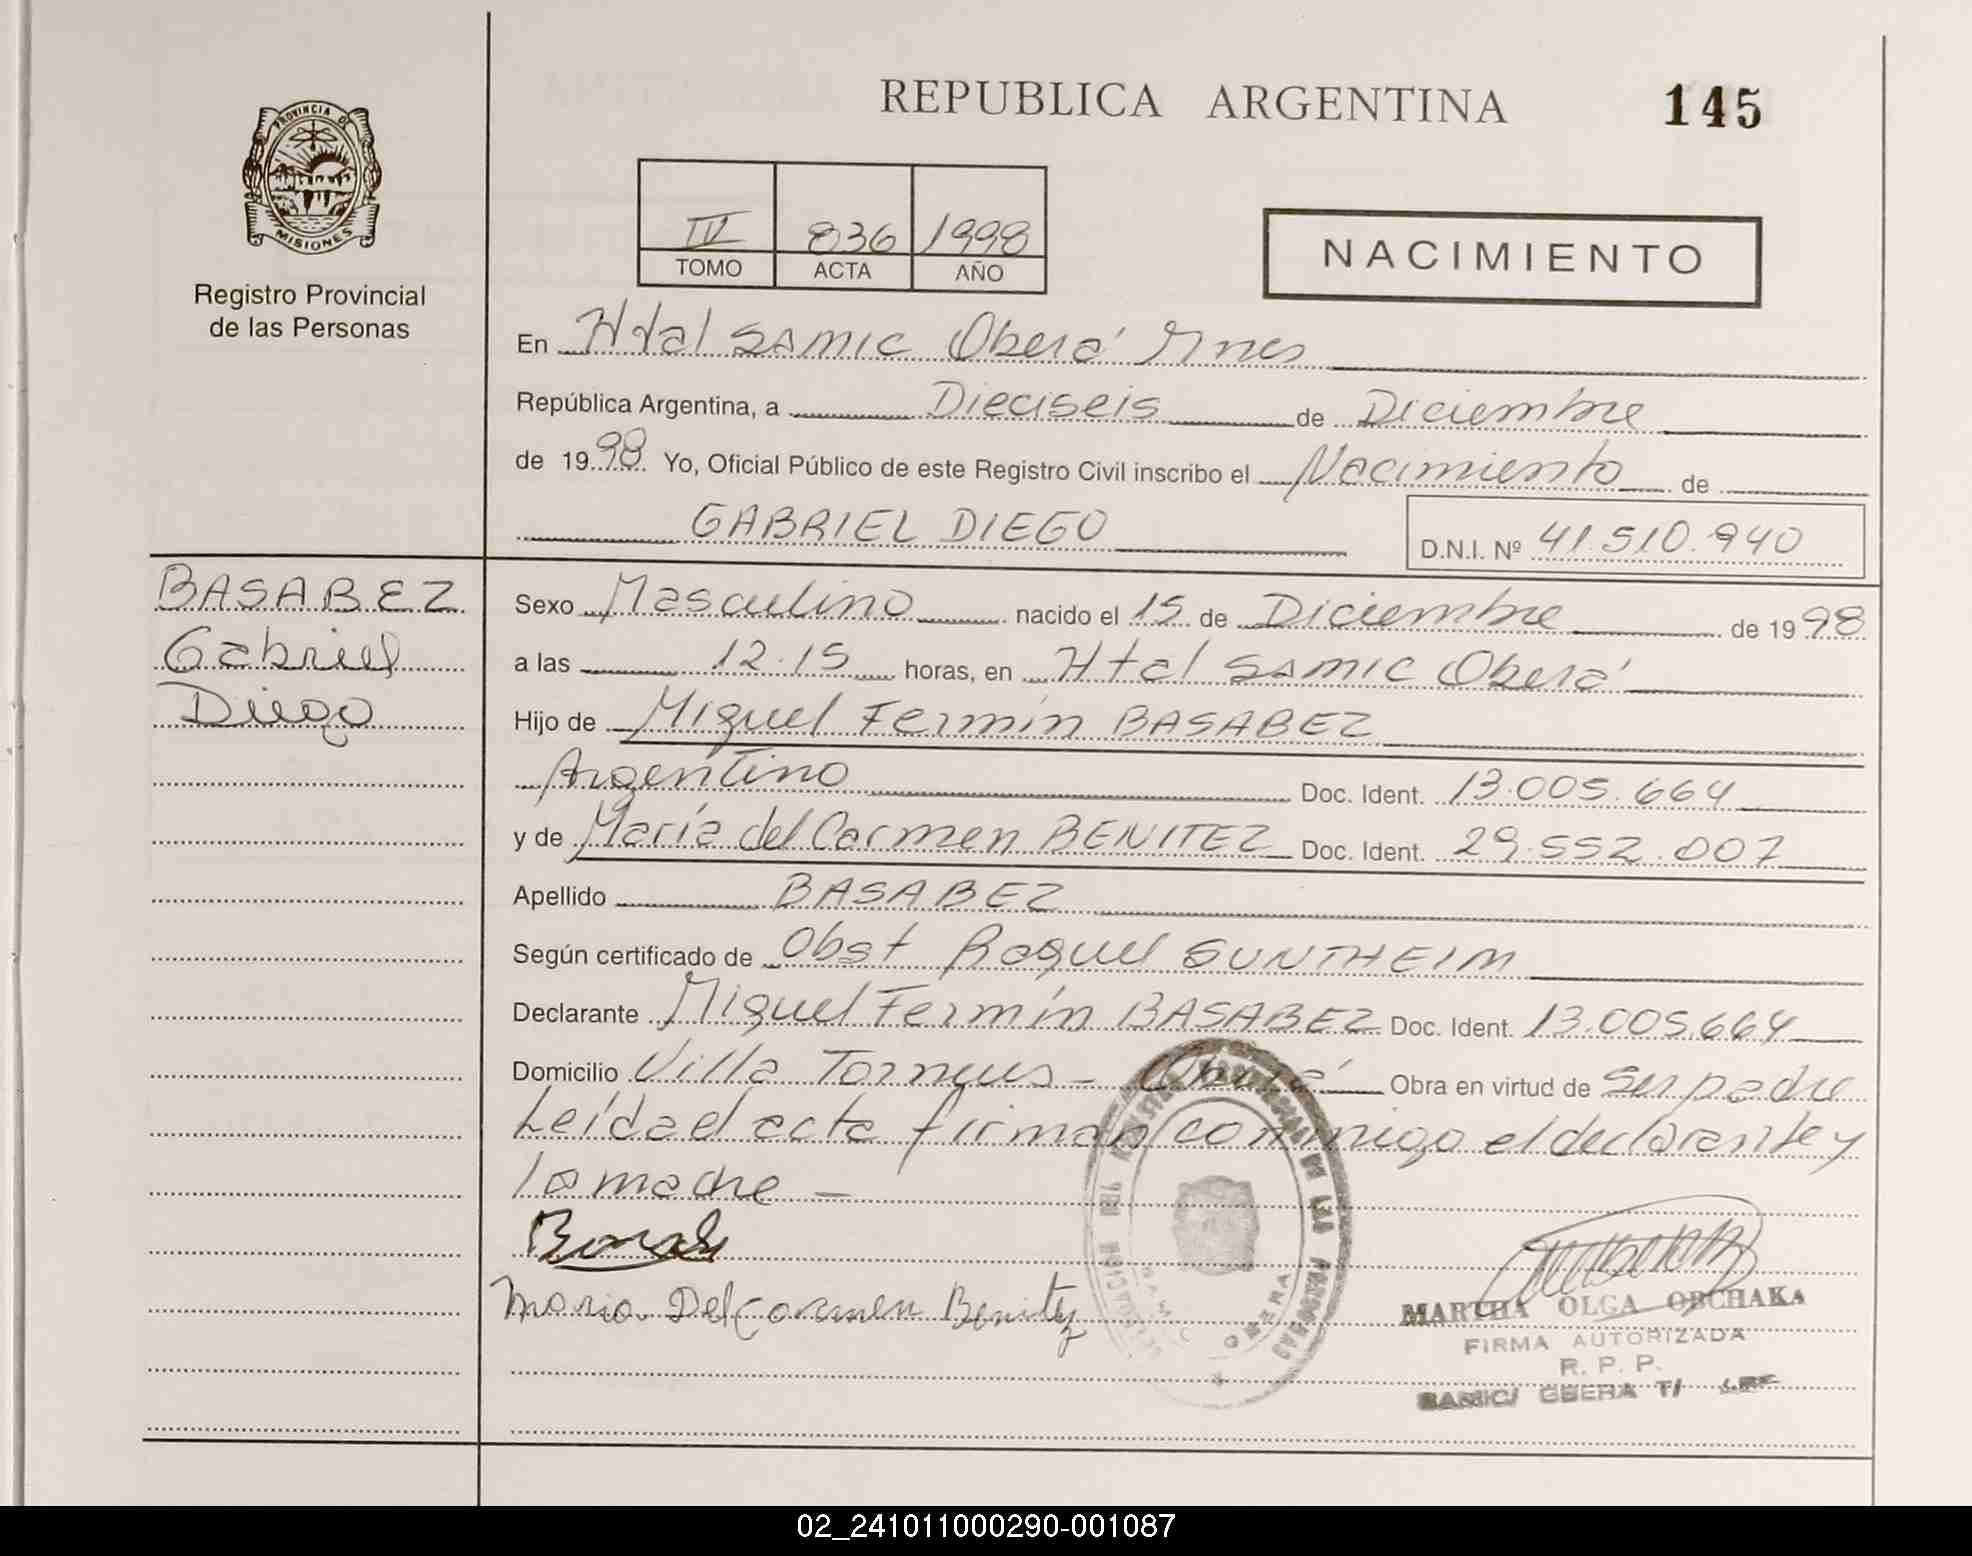 REPUBLICA ARGENTINA 145
PROVINCIA DE
MISIONES
Registro Provincial
de las Personas
IV 836 1998
TOMO ACTA AÑO
NACIMIENTO
En Htal SAMIC Oberá Mnes
República Argentina, a Dieciseis de Diciembre
de 1998 Yo, Oficial Público de este Registro Civil inscribo el Nacimiento de
GABRIEL DIEGO D.N.I. Nº 41.510.940
BASABEZ
Gabriel
Diego
Sexo Masculino nacido el 15 de Diciembre de 1998
a las 12.15 horas, en Htal SAMIC Oberá
Hijo de Miguel Fermín BASABEZ
Argentino Doc. Ident. 13.005.664
y de María del Carmen BENITEZ Doc. Ident. 29.552.007
Apellido BASABEZ
Según certificado de Obst Raquel SUNTHEIM
Declarante Miguel Fermín BASABEZ Doc. Ident. 13.005.664
Domicilio Villa Torneus - Oberá Obra en virtud de ser padre
Leída el acta firman conmigo el declarante y
la madre -
Maria Del Carmen Benitez
MARTHA OLGA OBCHAKA
FIRMA AUTORIZADA
R. P. P.
SAMIC/ OBERA
02_241011000290-001087